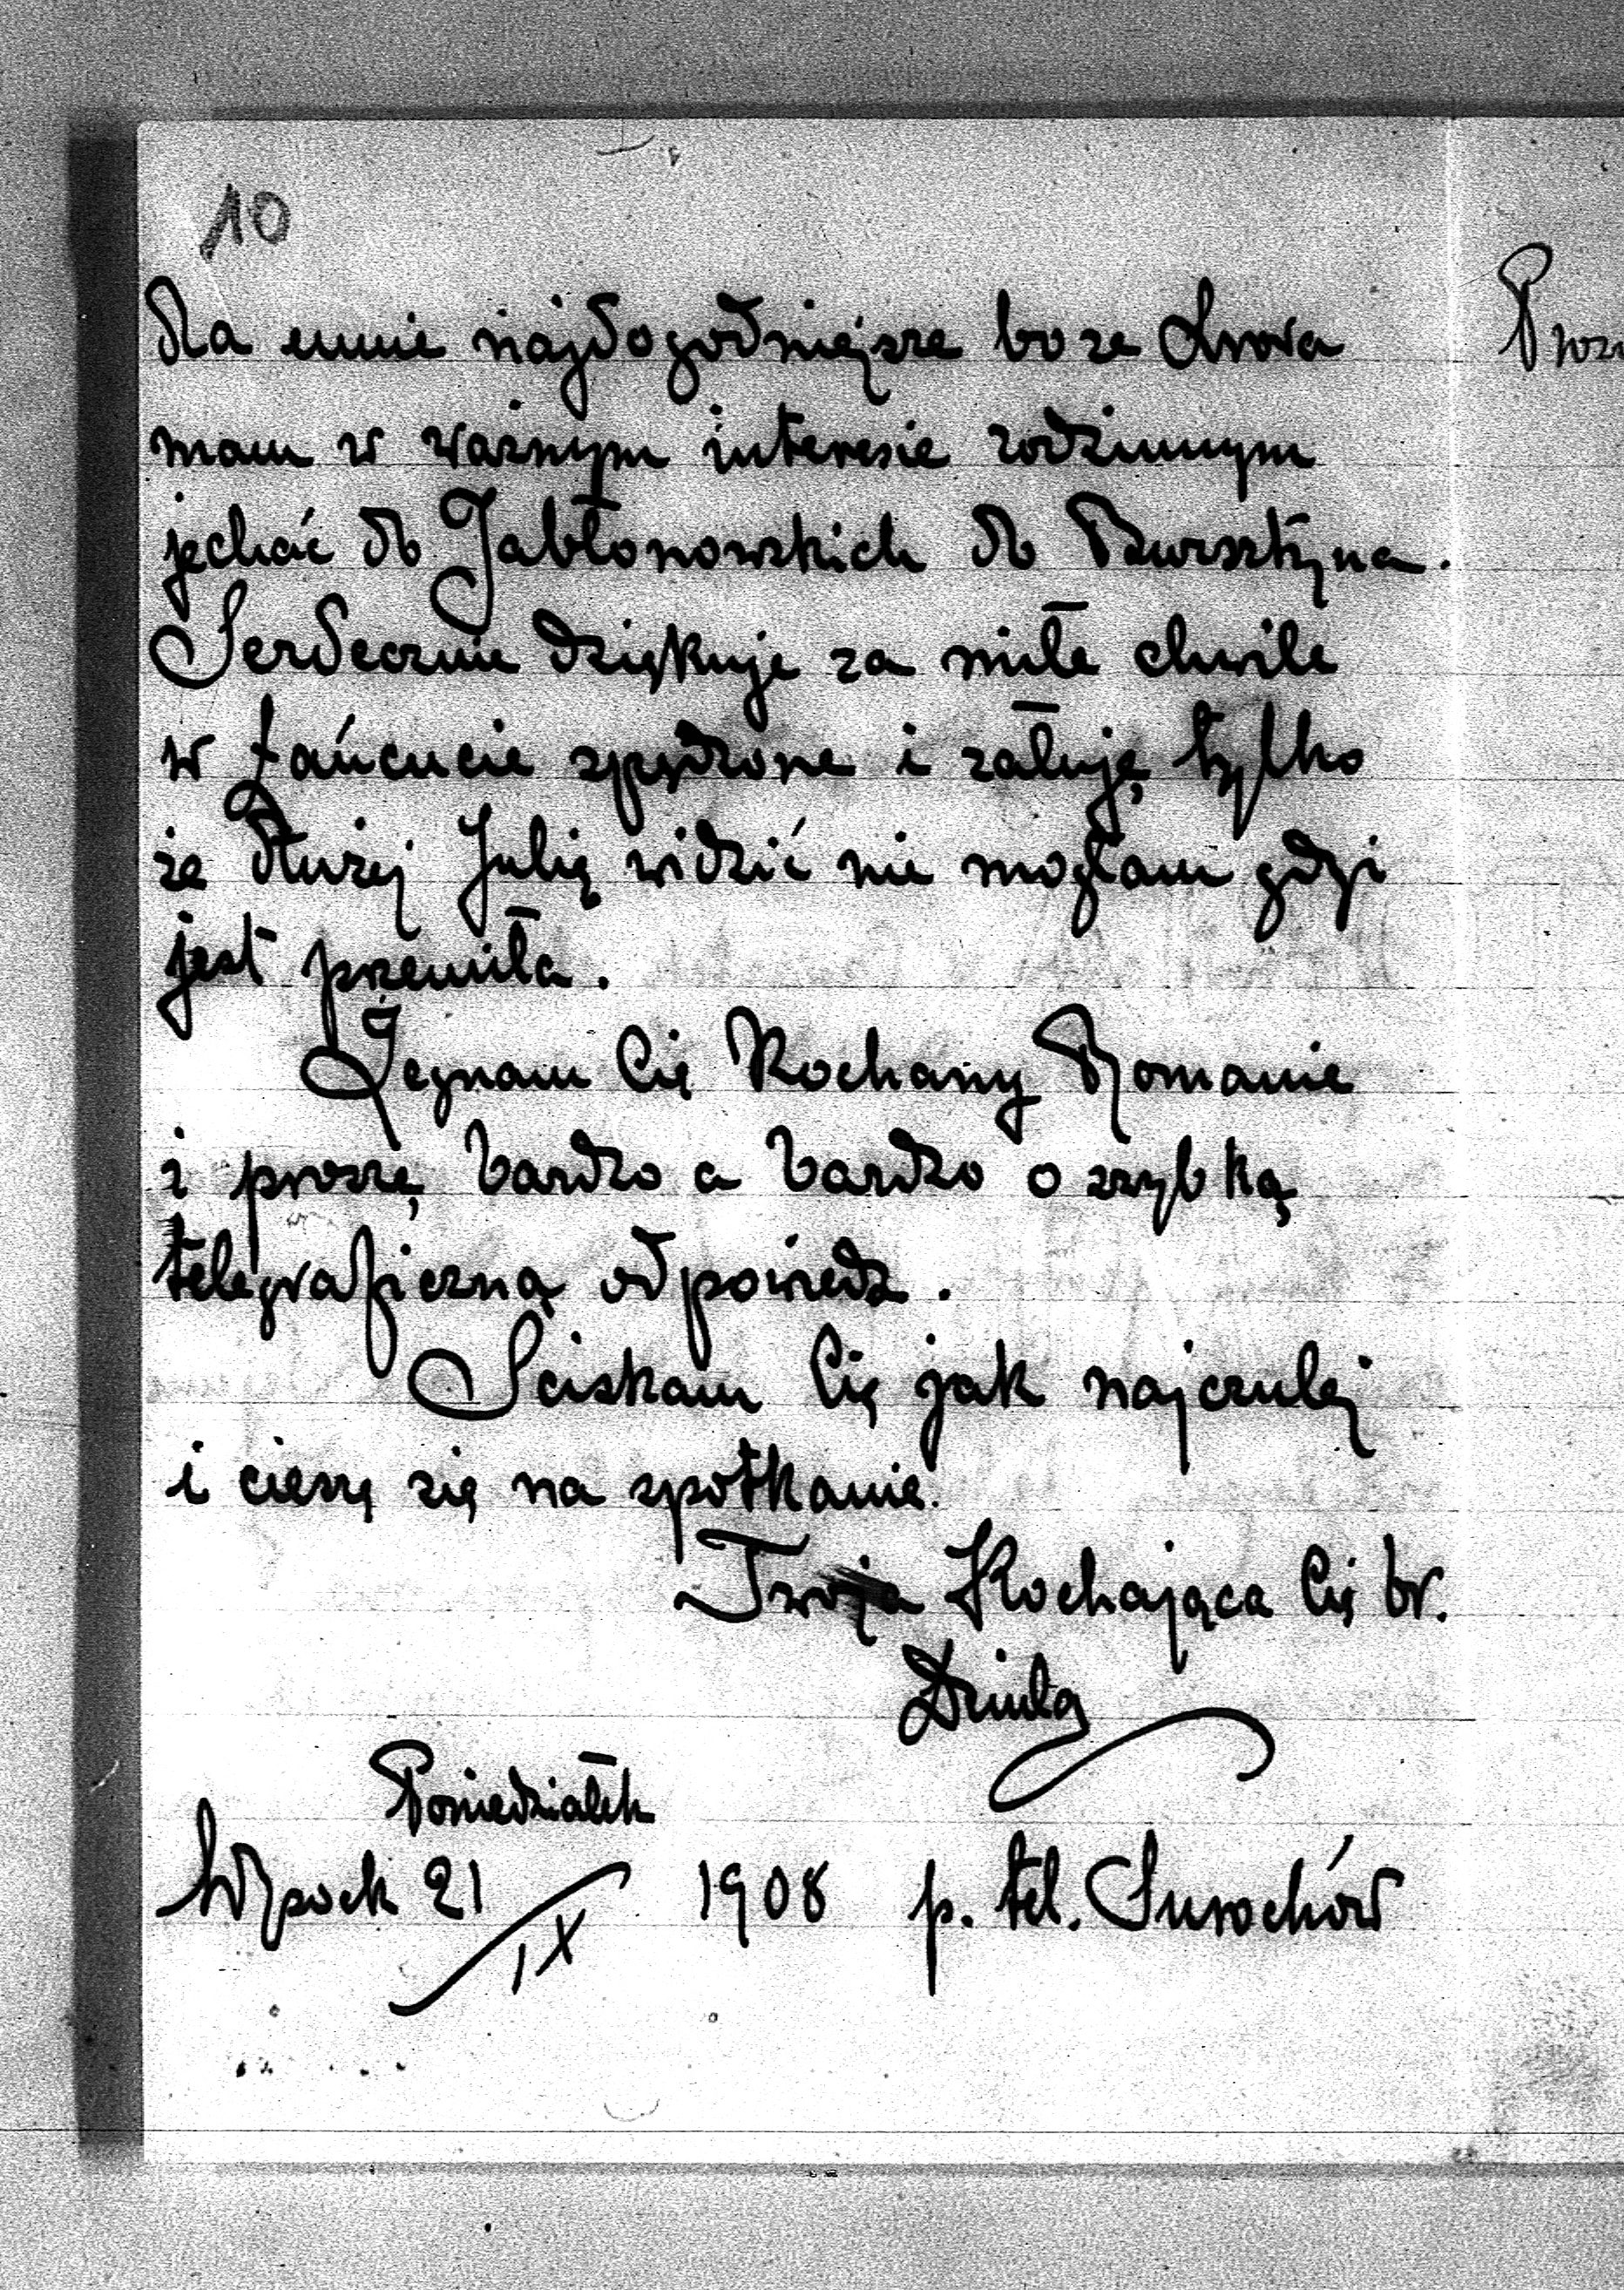 10
dla mnie najdogodniejsze bo ze Lwova
mam w ważnym interesie rodzinnym
jechać do Jabłonowskich do Bursztyna.
Serdecznie dziękuje za miłe chwile
w Łańcucie spędzone i załuję tylko
że dłużej Julią widzić nie mogłam gdyż
jest przemiła.
Żegnam Cię Kochany Romanie
i proszę bardzo a bardzo o szybką
telegraficzną odpowiedz.
Sciskam Cię jak najczulej
i cieszę się na spotkanie.
Twoja Kochająca Cię br.
Poniedziałek
Wysock 21/IX 1908 p. tel. Surochów